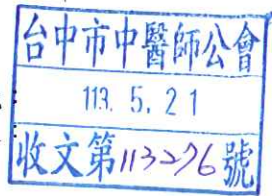 台中市中醫師公會
113. 5. 21
收文第113276號